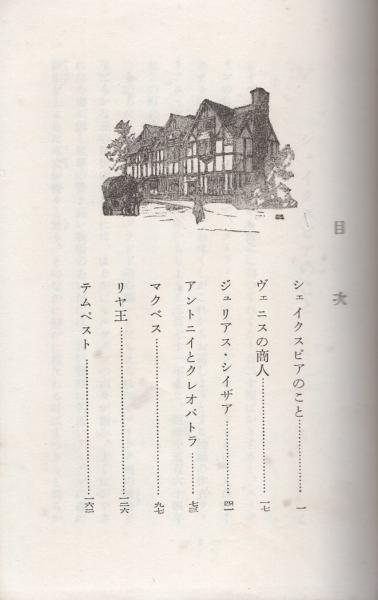 目次
シェイクスピアのこと……………一
ヴェニスの商人……………一七
ジュリアス・シイザア……………四一
アントニイとクレオパトラ……………七三
マクベス……………九七
リヤ王……………一二六
テムペスト……………一六二